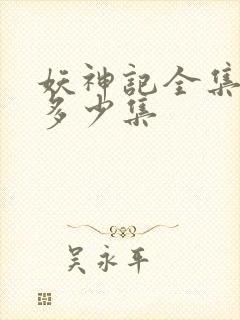 妖神記全集
多少集
吴永平